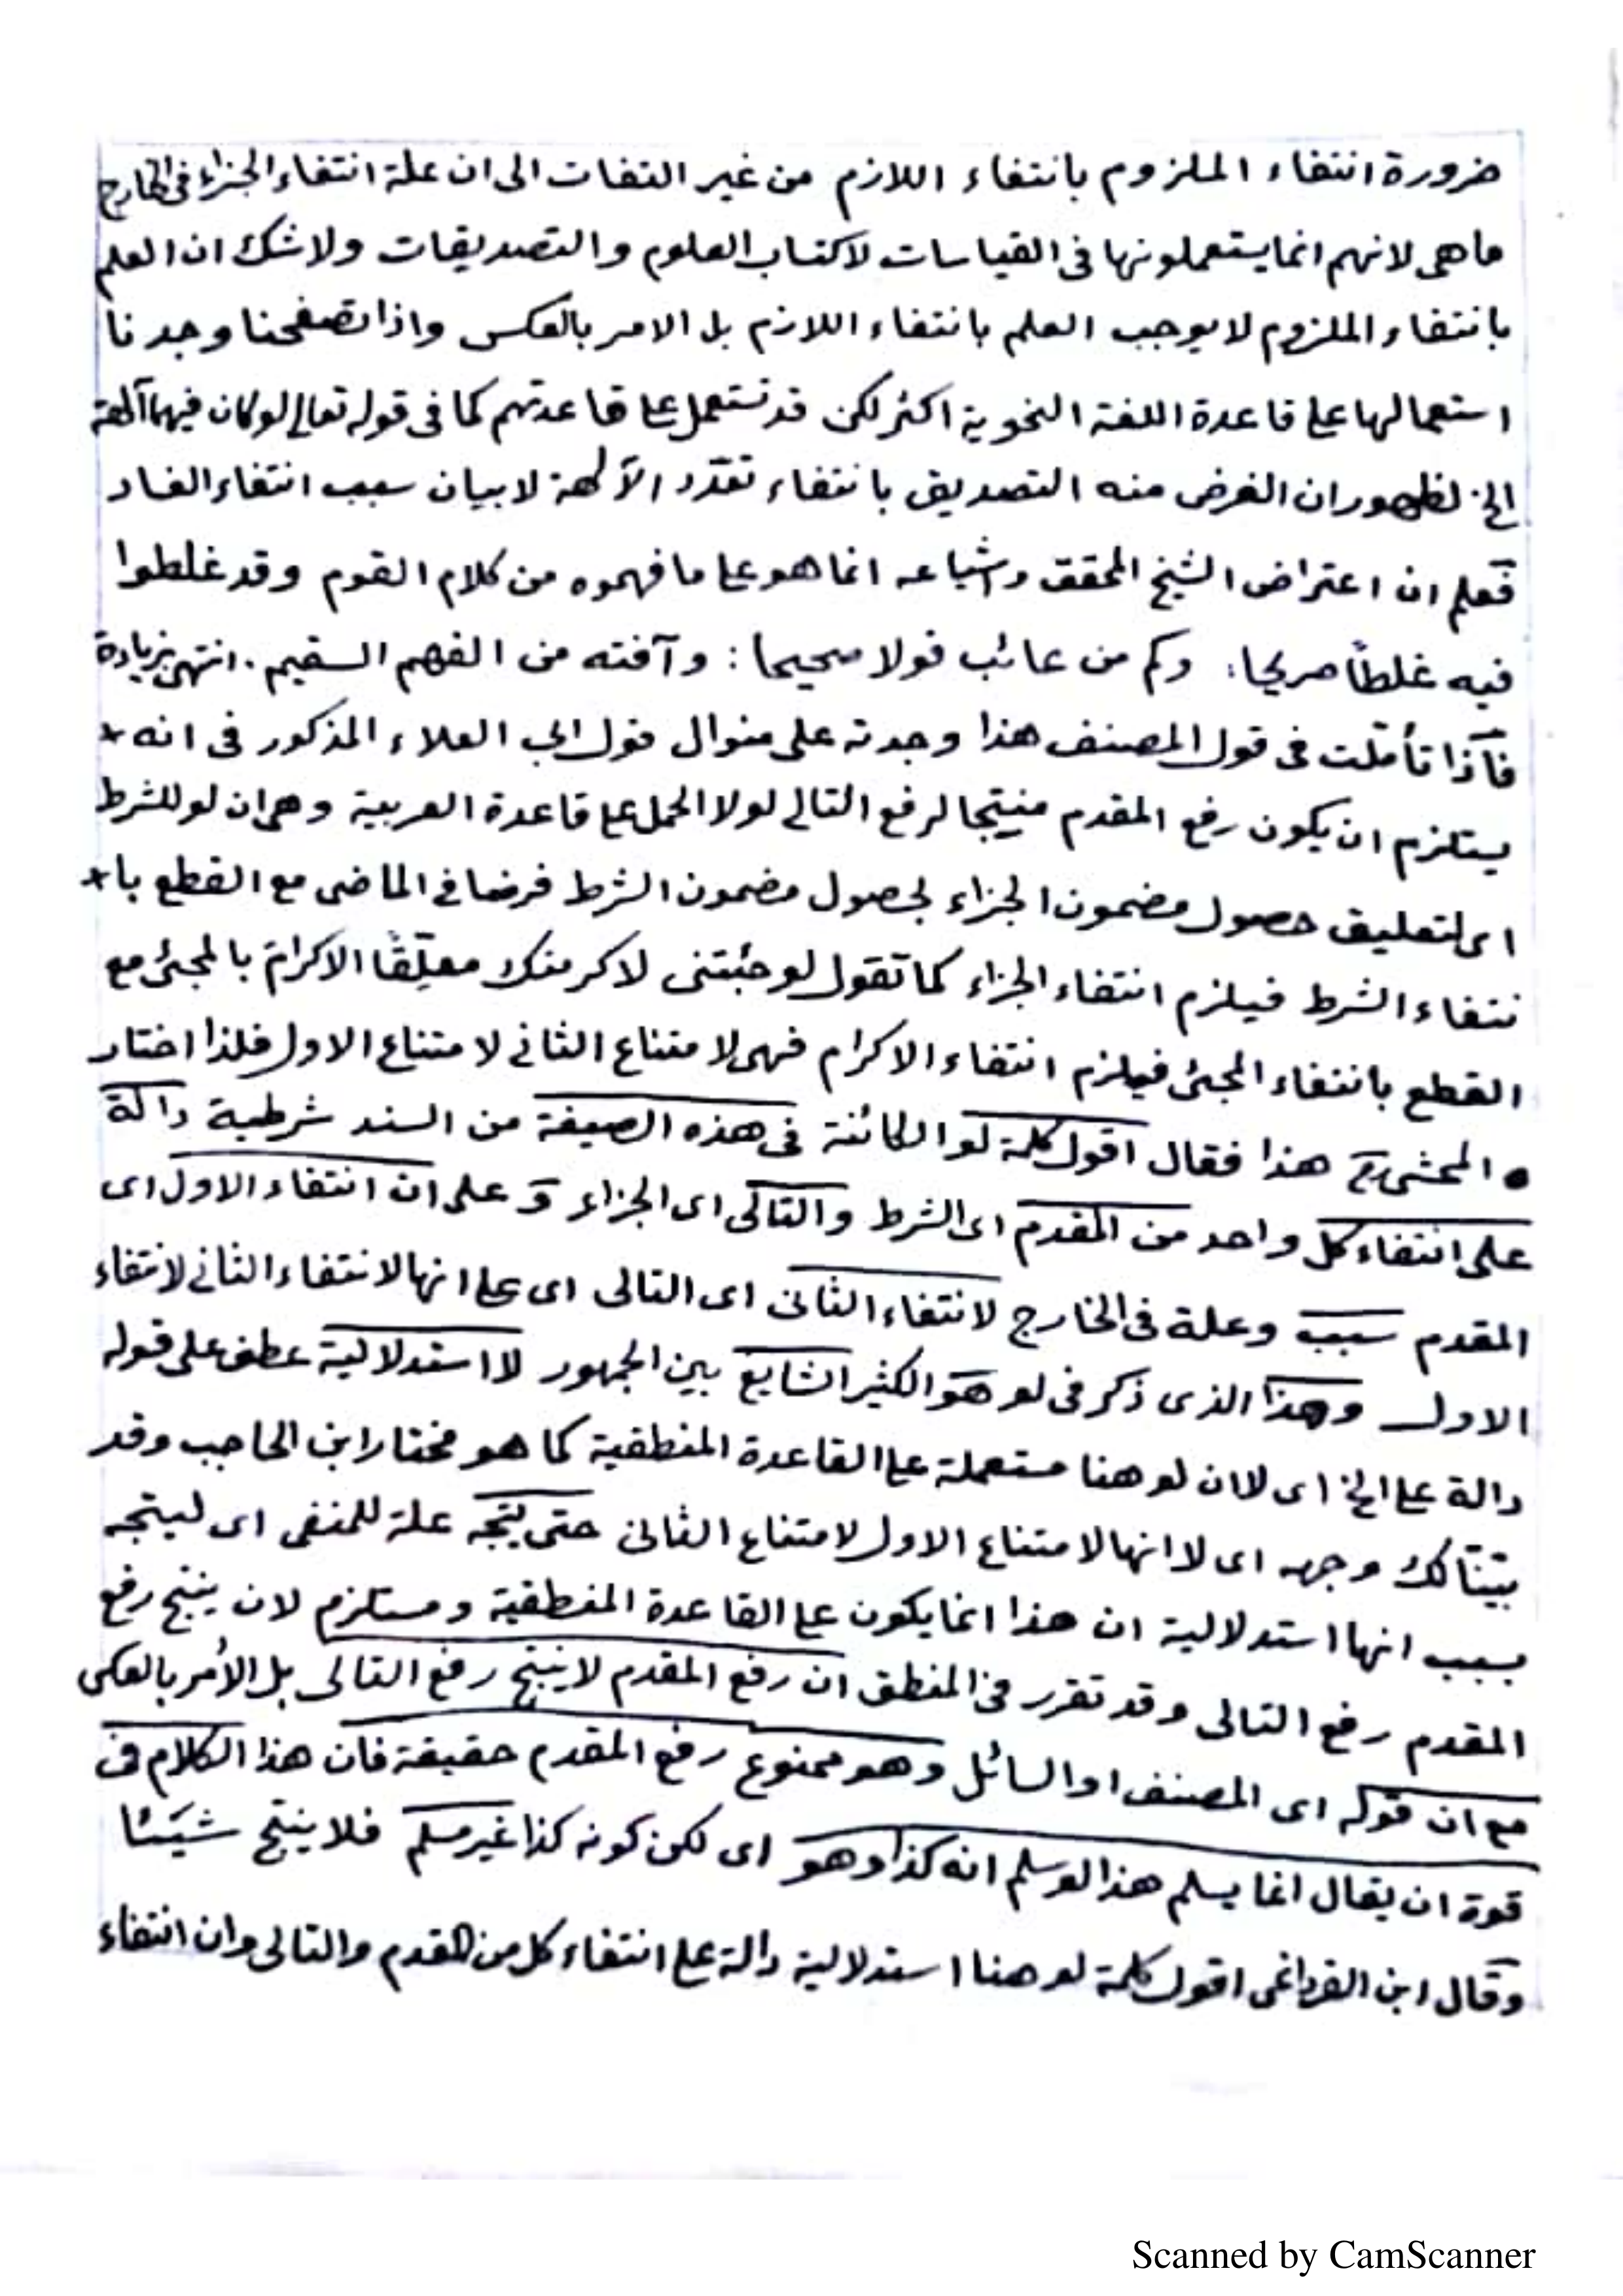 ضرورة انتفاء الملزوم بانتفاء اللازم من غير التفات الى ان علة انتفاء الجزاء فى الخارج
ماهى لانهم انما يستعملونها فى القياسات لاكتساب العلوم والتصديقات ولاشك ان العلم
بانتفاء الملزوم لا يوجب العلم بانتفاء اللازم بل الامر بالعكس واذا تصفحنا وجدنا
استعمالها على قاعدة اللغة النحوية اكثر لكن قد تستعمل على قاعدتهم كما فى قوله تعالى لو كان فيهما آلهة
الخ لظهور ان الغرض منه التصديق بانتفاء تعدّد الآلهة لا بيان سبب انتفاء الفساد
فعلم ان اعتراض الشيخ المحقق واشياعه انما هو على ما فهموه من كلام القوم وقد غلطوا
فيه غلطاً صريحا: وكم من عائب قولا صحيحا: وآفته من الفهم السقيم. انتهى بزيادة
فاذا تأملت فى قول المصنف هذا وجدته على منوال قول ابى العلاء المذكور فى انه
يستلزم ان يكون رفع المقدم منيتجا لرفع التالى لولا الحمل على قاعدة العربية وهى ان لو للشرط
اى لتعليق حصول مضمون الجزاء لحصول مضمون الشرط فرضا فى الماضى مع القطع با
نتفاء الشرط فيلزم انتفاء الجزاء كما تقول لو جئتنى لاكرمتك معلّقًا الاكرامَ بالمجئ مع
القطع بانتفاء المجئ فيلزم انتفاء الاكرام فهى لامتناع الثانى لامتناع الاول فلذا اختار
• المحشى هذا فقال اقول كلمة لو الكائنة فى هذه الصيغة من السند شرطية دالة
على انتفاء كل واحد من المقدم اى الشرط والتالى اى الجزاء و على ان انتفاء الاول اى
المقدم سبب وعلة فى الخارج لانتفاء الثانى اى التالى اى على انها لانتفاء الثانى لانتفاء
الاول وهذا الذى ذكر فى لو هو الكثير الشايع بين الجمهور لا استدلالية عطف على قوله
دالة على الخ اى لان لو هنا مستعملة على القاعدة المنطقية كما هو مختار ابن الحاجب وقد
بيّنّا لك وجهه اى لا انها لامتناع الاول لامتناع الثانى حتى يتجه علة للمنفى اى ليتجه
بسبب انها استدلالية ان هذا انما يكون على القاعدة المنطقية ومستلزم لان ينتج رفع
المقدم رفع التالى وقد تقرر فى المنطق ان رفع المقدم لا ينتج رفع التالى بل الأمر بالعكس
مع ان قوله اى المصنف او السائل وهو ممنوع رفع المقدم حقيقة فان هذا الكلام فى
قوة ان يقال انما يسلم هذا لو سلم انه كذا وهو اى لكن كونه كذا غير مسلم فلا ينتج شيئا
وقال ابن القرداغى اقول كلمة لو هنا استدلالية دالة على انتفاء كل من المقدم والتالى وان انتفاء
Scanned by CamScanner